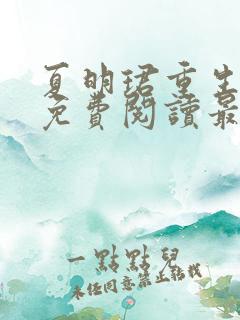 夏明珺重生
免費閱讀最
一點點兒
未經同意禁止轉載